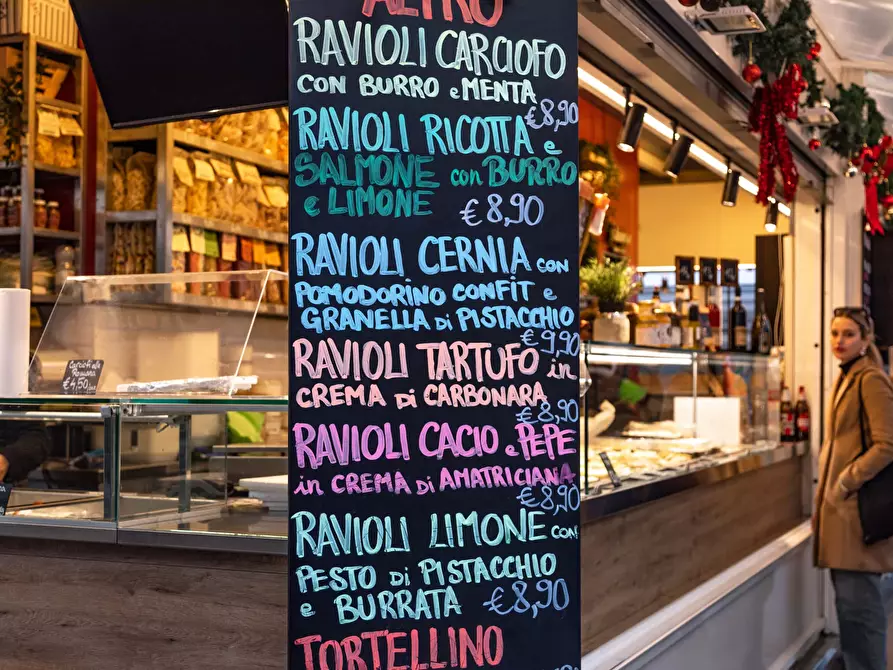 ALTRO
RAVIOLI CARCIOFO
CON BURRO e MENTA
€8,90
RAVIOLI RICOTTA
SALMONE con BURRO
e LIMONE €8,90
RAVIOLI CERNIA con
POMODORINO CONFIT e
GRANELLA di PISTACCHIO
€9,90
RAVIOLI TARTUFO in
CREMA di CARBONARA
€8,90
RAVIOLI CACIO e PEPE
in CREMA di AMATRICIANA
€8,90
RAVIOLI LIMONE con
PESTO di PISTACCHIO
e BURRATA €8,90
TORTELLINO
Carciofi alla
Romana
€4,50